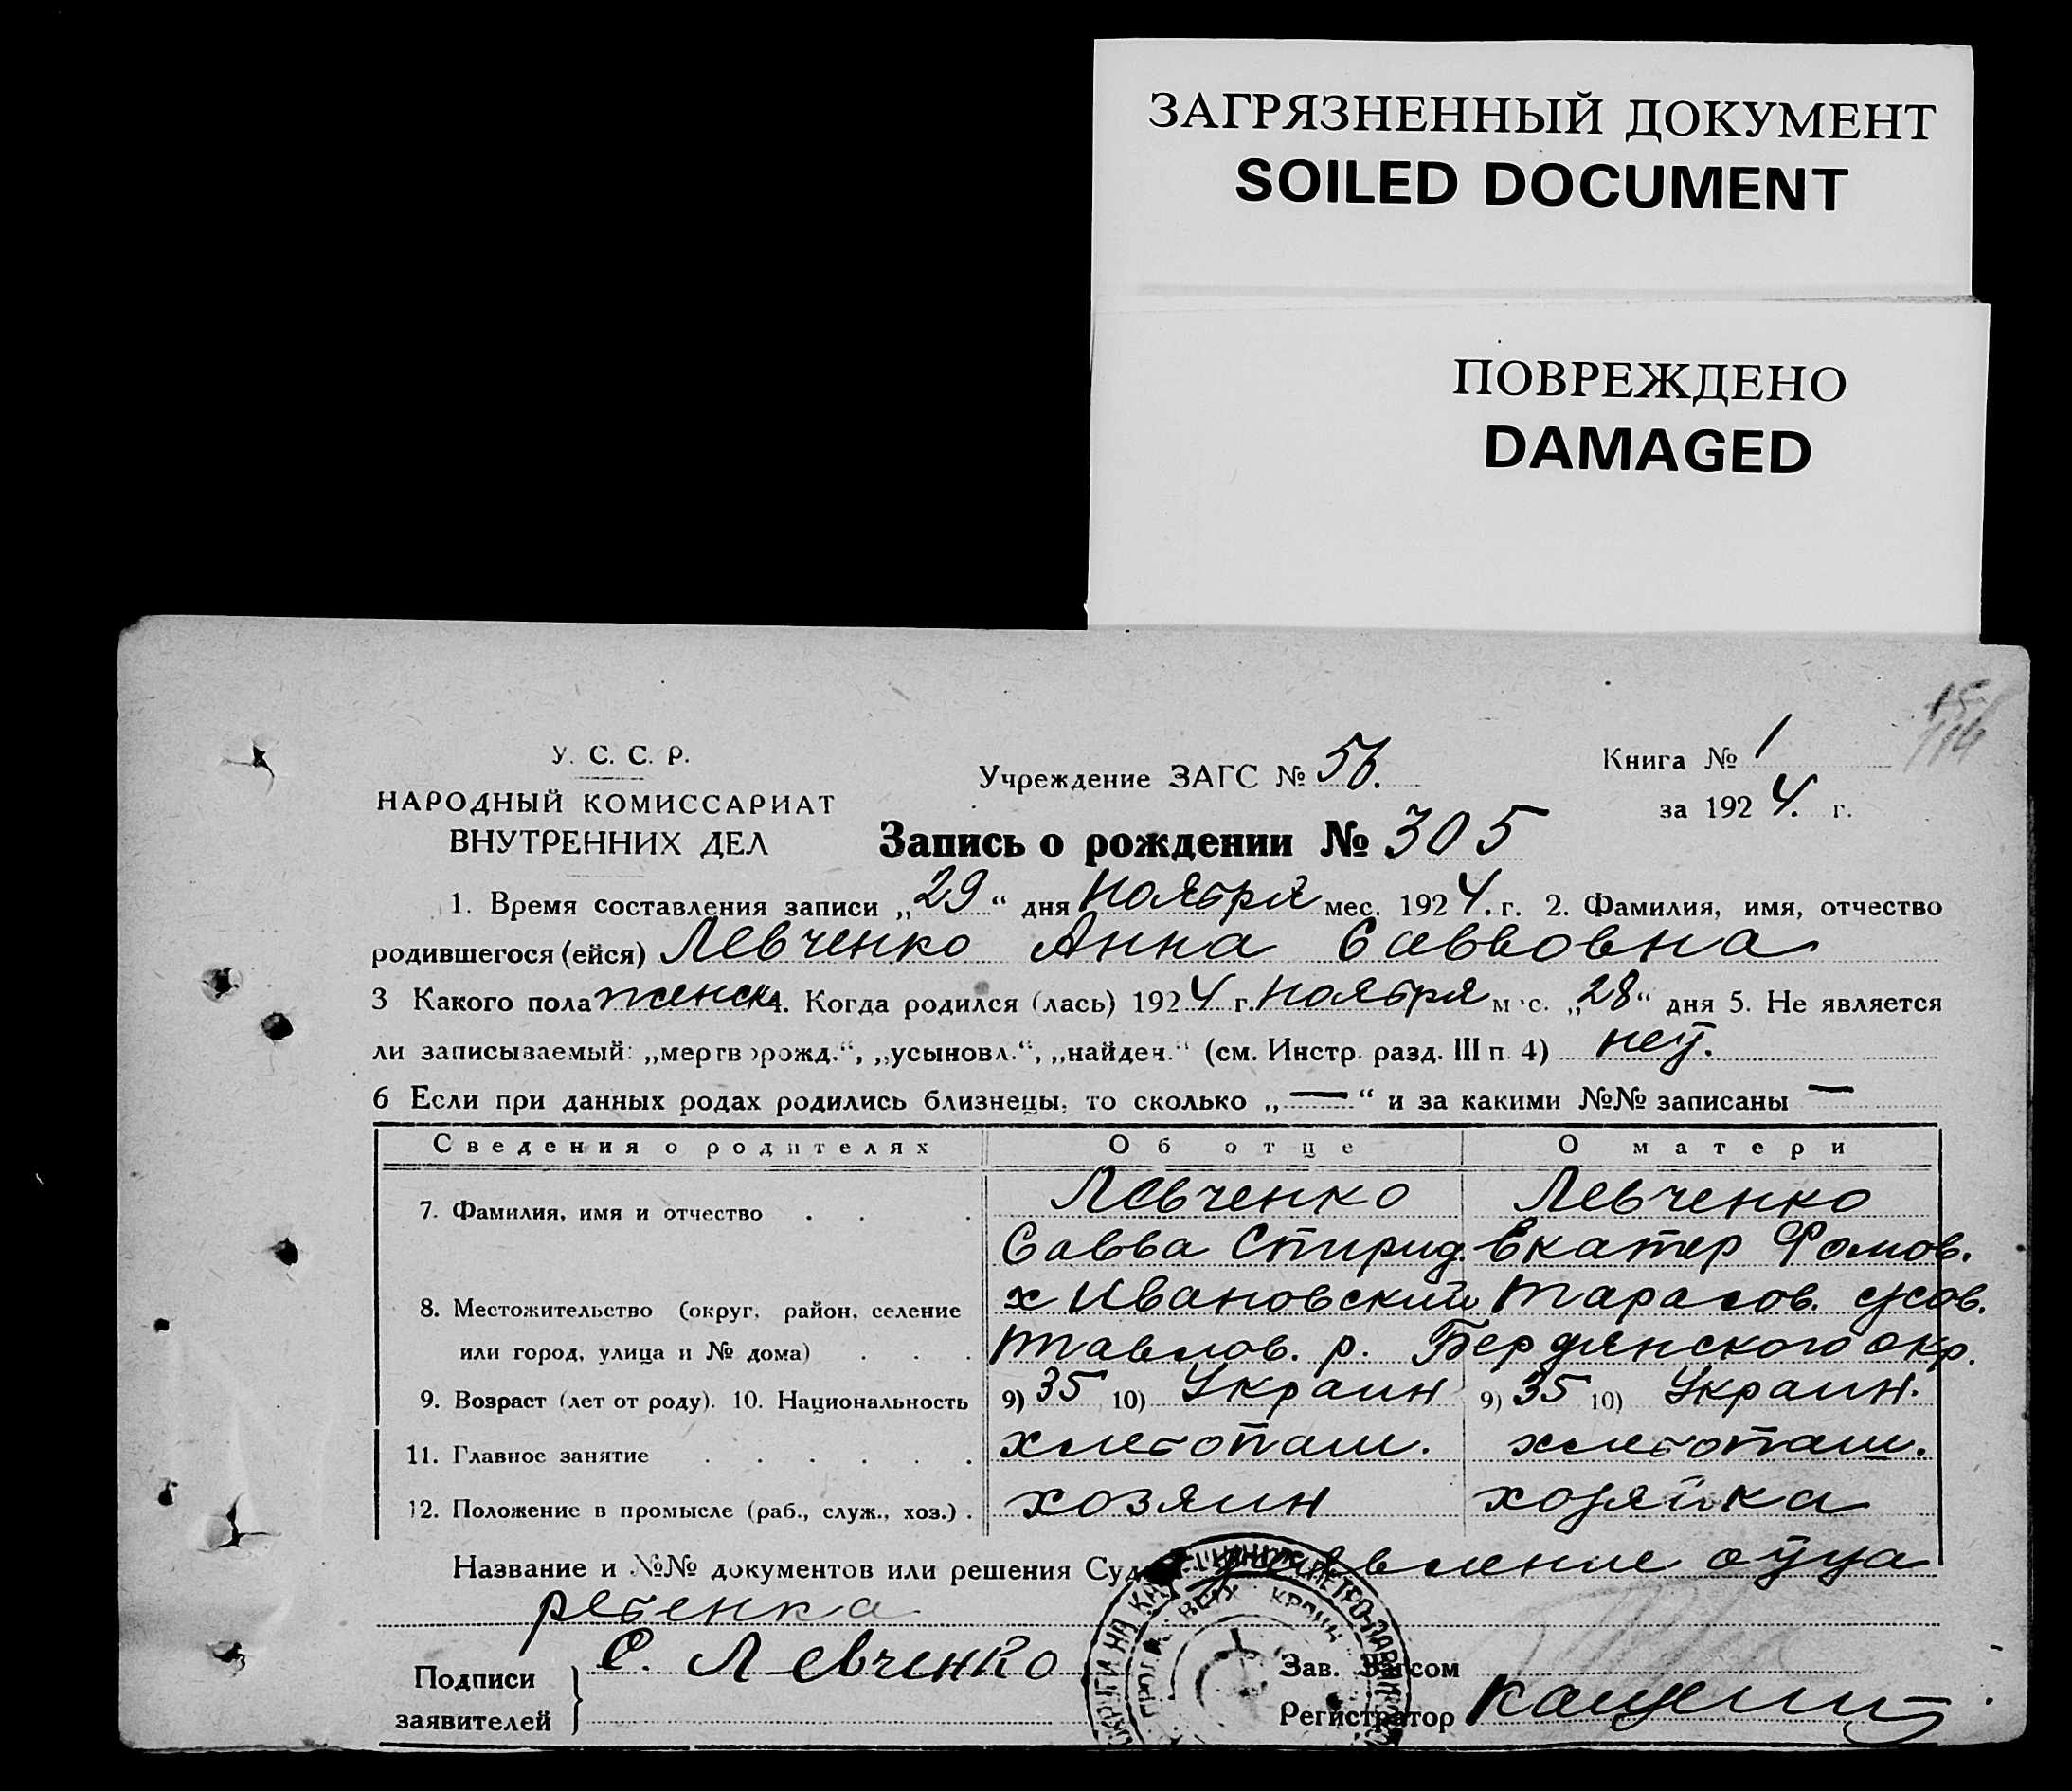 ЗАГРЯЗНЕННЫЙ ДОКУМЕНТ
SOILED DOCUMENT
ПОВРЕЖДЕНО
DAMAGED
У. С. С. Р.
НАРОДНЫЙ КОМИССАРИАТ
ВНУТРЕННИХ ДЕЛ
Учреждение ЗАГС № 56.
Книга № 1
за 1924. г.
Запись о рождении № 305
1. Время составления записи „29“ дня Ноября мес. 1924. г. 2. Фамилия, имя, отчество
родившегося (ейся) Левченко Анна Саввовна
3 Какого пола женск 4. Когда родился (лась) 1924 г. Ноября м с. „28“ дня 5. Не является
ли записываемый: „мертворожд.“, „усыновл.“, „найден.“ (см. Инстр. разд. III п. 4) нет.
6 Если при данных родах родились близнецы, то сколько „—“ и за какими №№ записаны —
Сведения о родителях Об отце О матери
7. Фамилия, имя и отчество . . . Левченко Левченко
Савва Спирид. Екатер Фомов.
8. Местожительство (округ, район, селение х Ивановский Тарасов. с/сов.
или город, улица и № дома) . . . р. Бердянского окр.
9. Возраст (лет от роду). 10. Национальность 9) 35 10) Украин 9) 35 10) Украин.
11. Главное занятие . . . . . . хлебопаш. хлебопаш.
12. Положение в промысле (раб., служ., хоз.) . хозяин хозяйка
Название и №№ документов или решения Суда заявление отца
ребенка
Подписи
заявителей
С. Левченко
Зав. Загсом
Регистратор